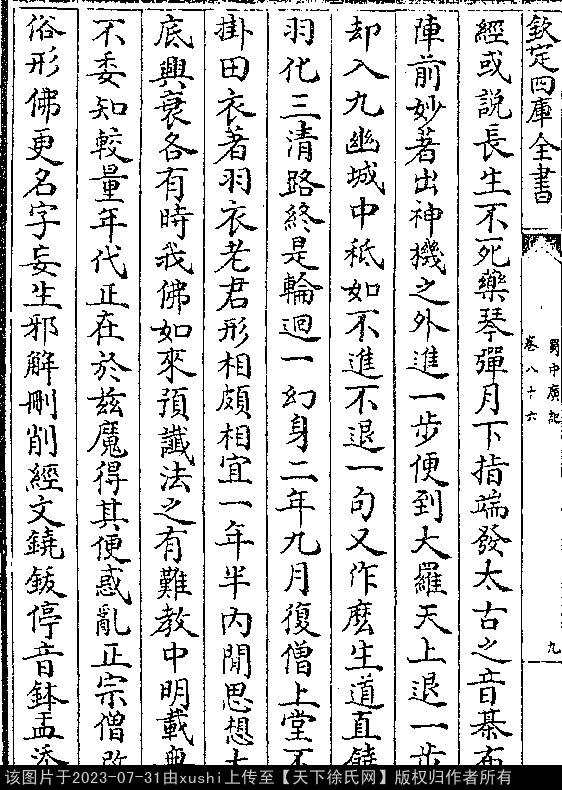 欽定四庫全書
蜀中廣記
卷八十六
九
經或說長生不死藥琴彈月下指端發太古之音棊布
陣前妙著出神機之外進一步便到大羅天上退一步
却入九幽城中秪如不進不退一句又作麽生道直饒
羽化三清路終是輪迴一幻身二年九月復僧上堂不
掛田衣著羽衣老君形相頗相宜一年半內閒思想大
底興衰各有時我佛如來預讖法之有難教中明載無
不委知較量年代正在於兹魔得其便惑亂正宗僧改
俗形佛更名字妄生邪解刪削經文鐃鈸停音鉢盂添
该图片于2023-07-31由xushi上传至【天下徐氏网】版权归作者所有